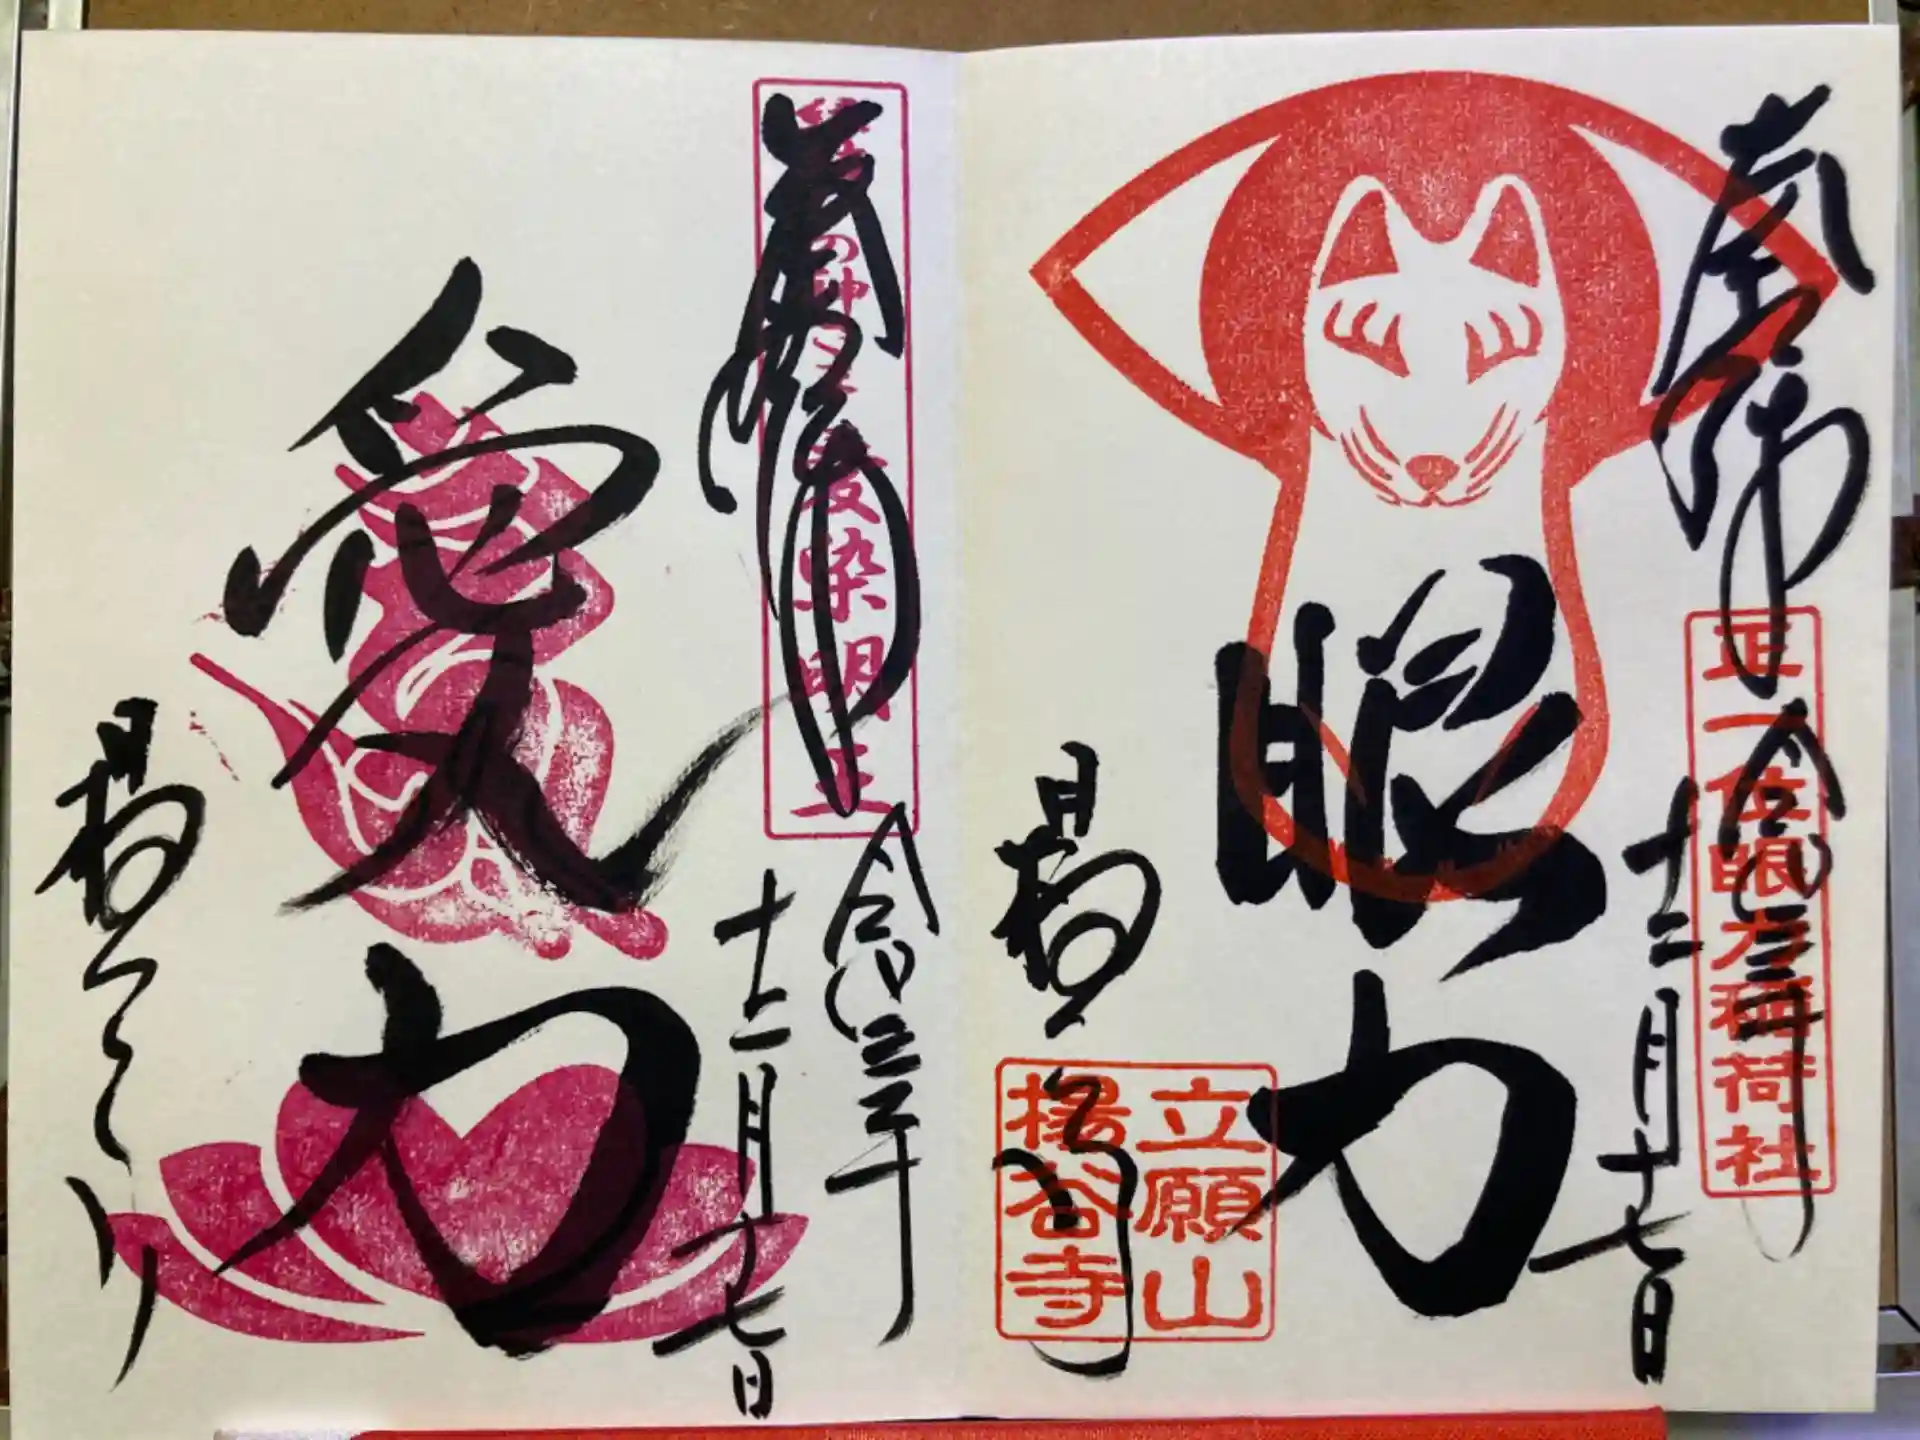 奉拝
正一位眼力稲荷社
令和三年
十二月十七日
眼力
立願山
楊谷寺
楊谷寺
奉拝
愛染明王
令和三年
十二月十七日
愛力
楊谷寺